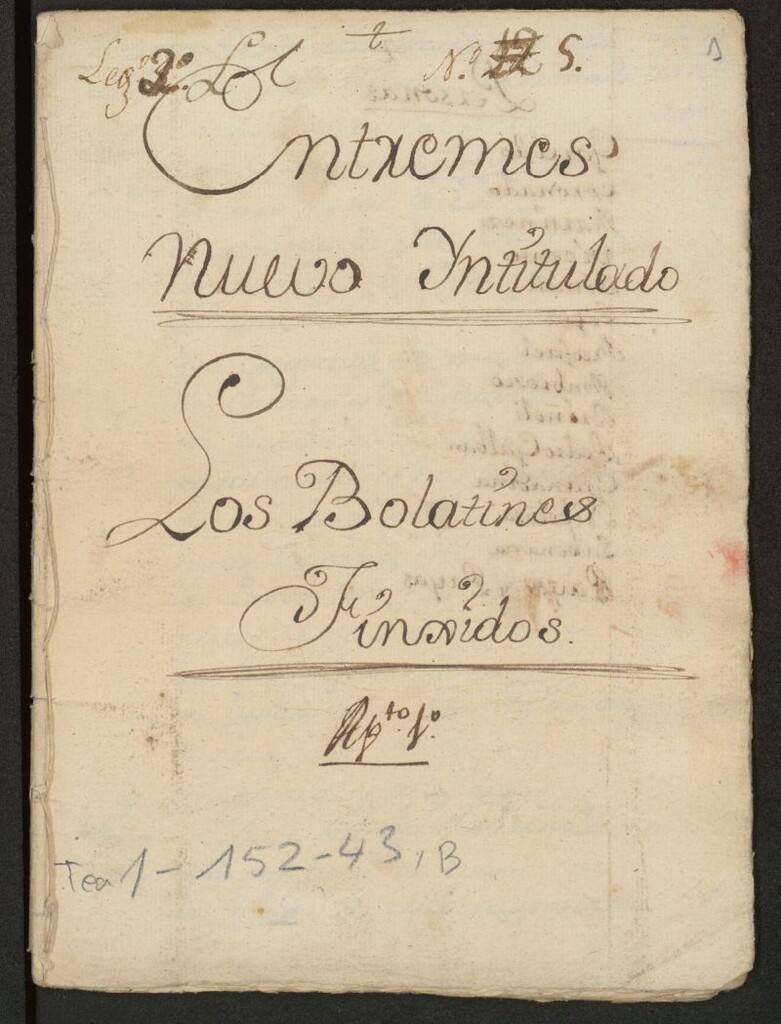 Leg.º 3.º L
t
N.º 5.
1
Entremes
nuevo Yntitulado
Los Bolatines
Finxidos.
Ap.to 1.º
Tea 1-152-43, B